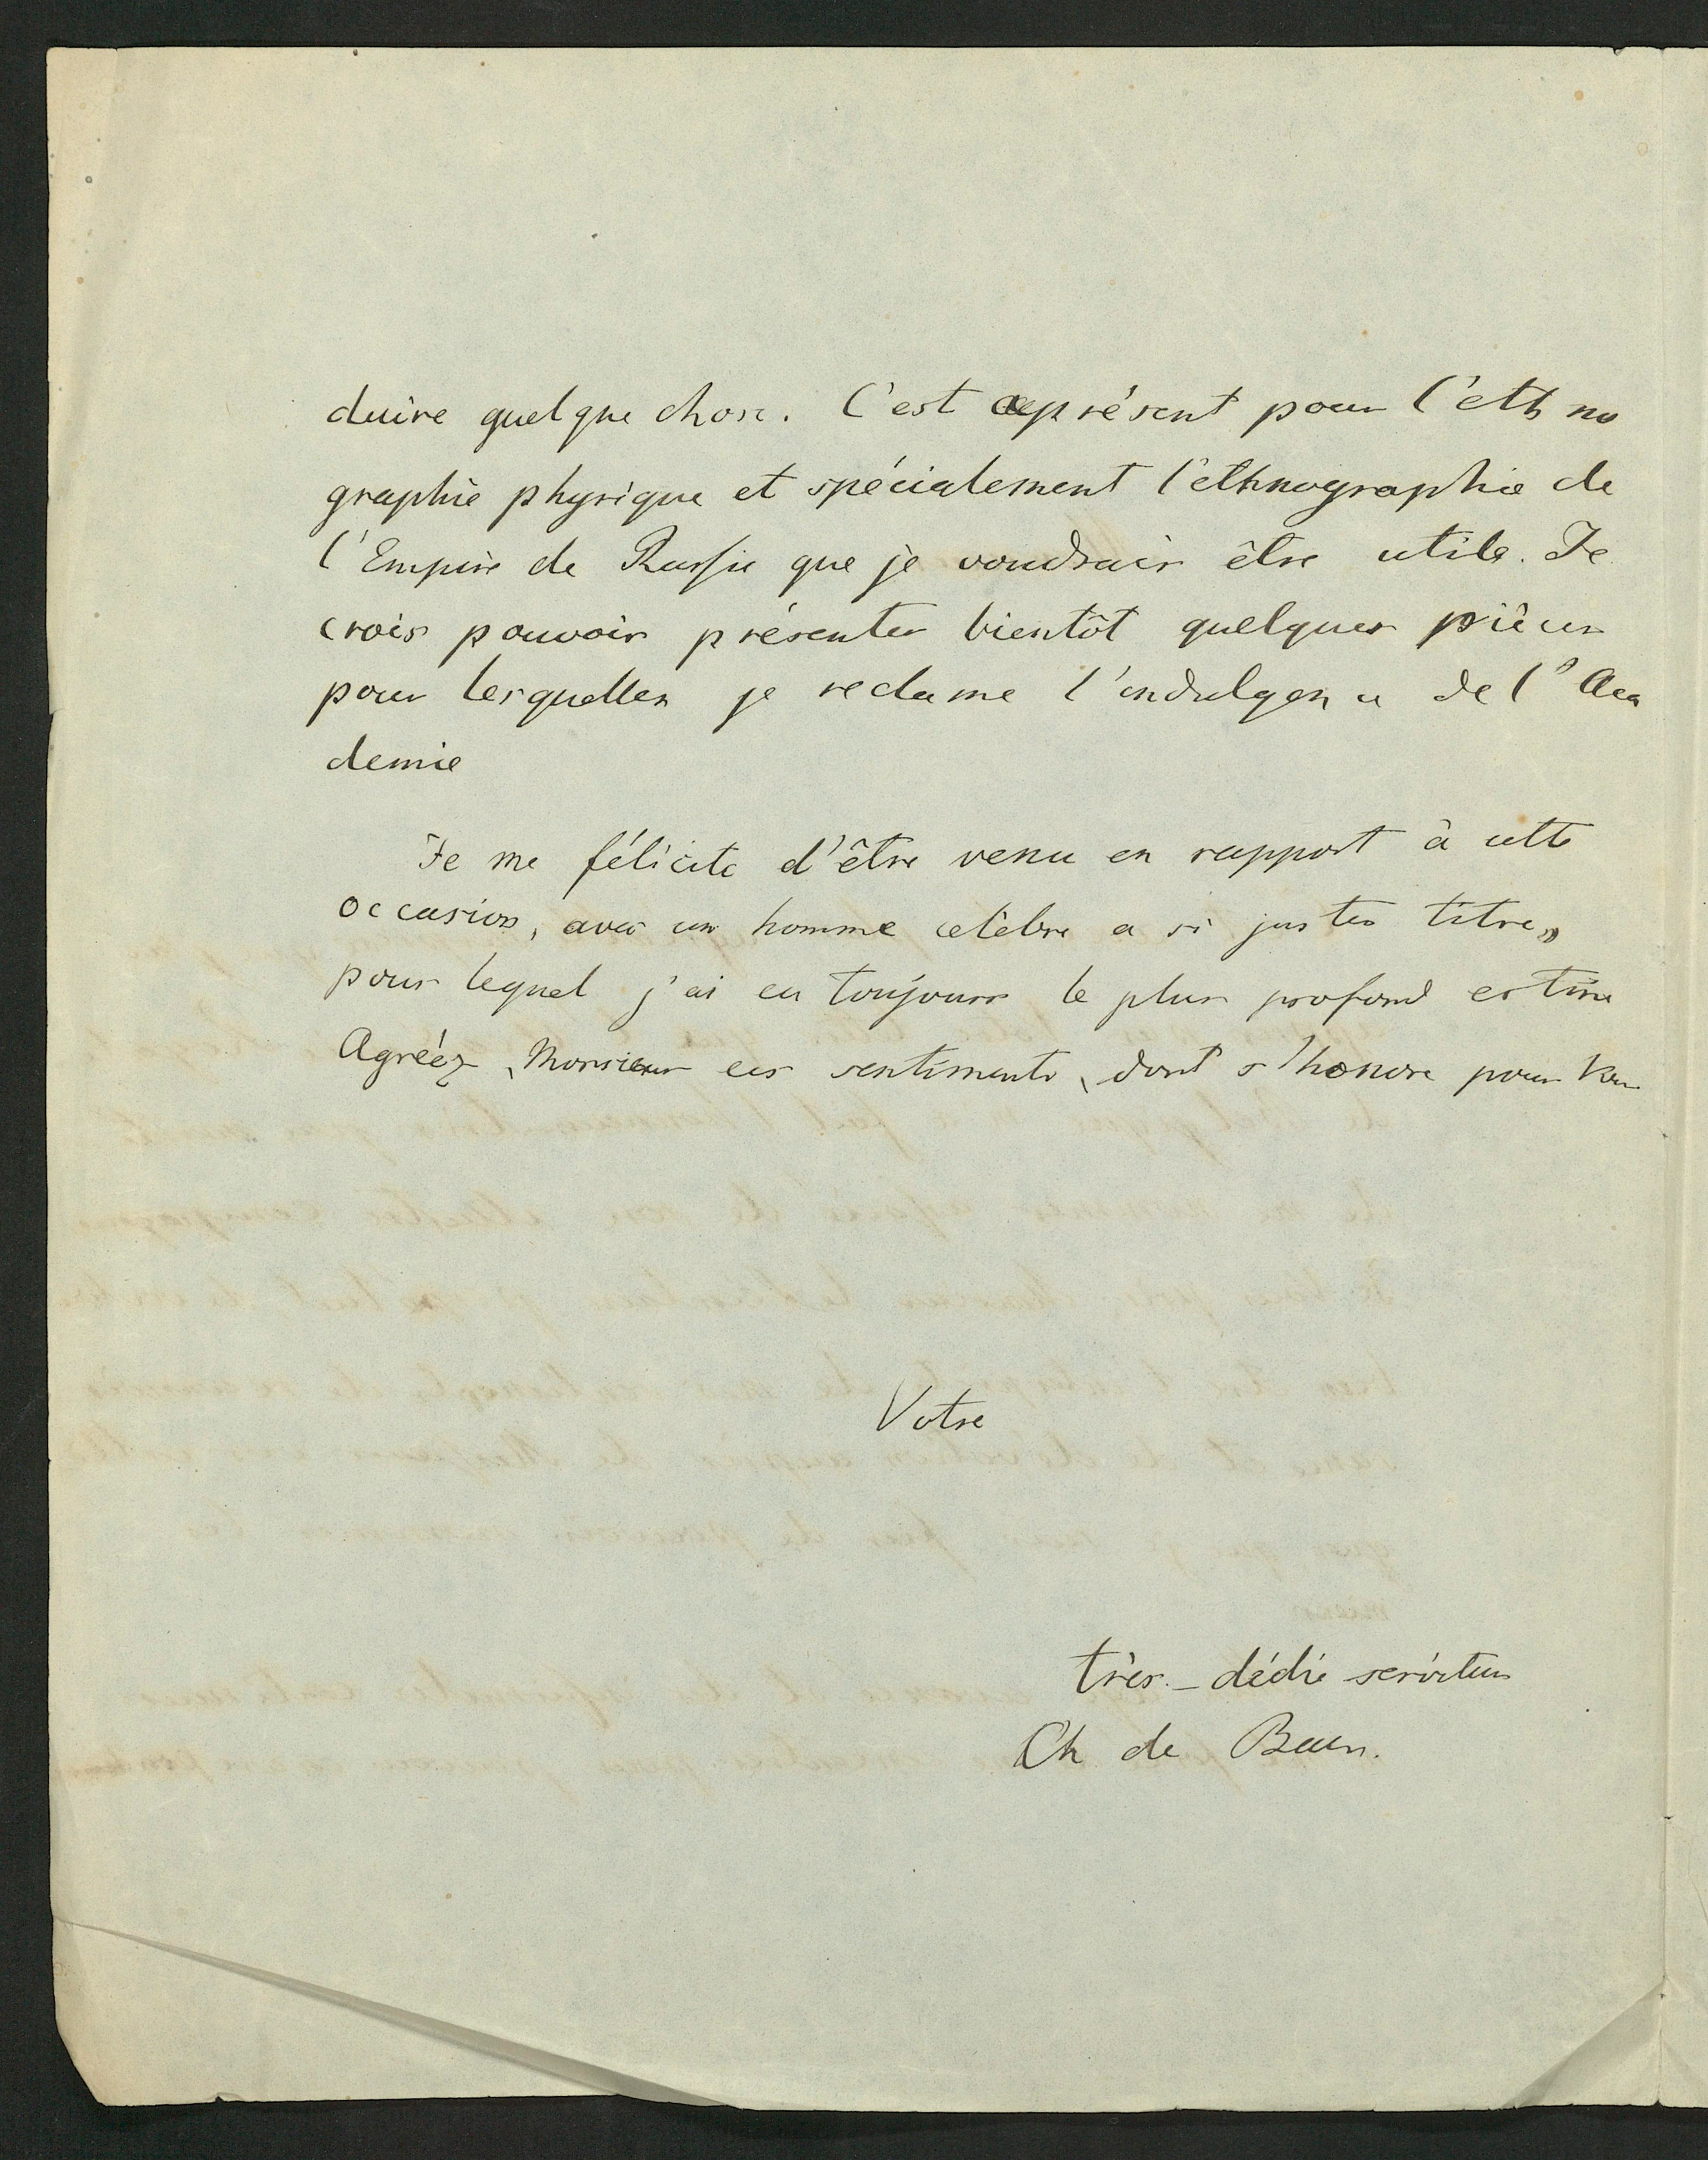 duire quelque chose. C'est aprésent pour l'ethno
graphie physique et spécialement l'ethnographie de
l'Empire de Russie que je voudrais être utile. Je
crois pouvoir présenter bientôt quelques pièces
pour lesquelles je reclame l'indulgence de l'Aca
demie
Je me félicite d'être venu en rapport à cette
occasion, avec un homme celèbre a si justes titres,
pour lequel j'ai eu toujours le plus profond estime
Agréez, Monsieur ces sentiments, dont s'honore pour
Votre
très-dédié serviteur
Ch de Baer.